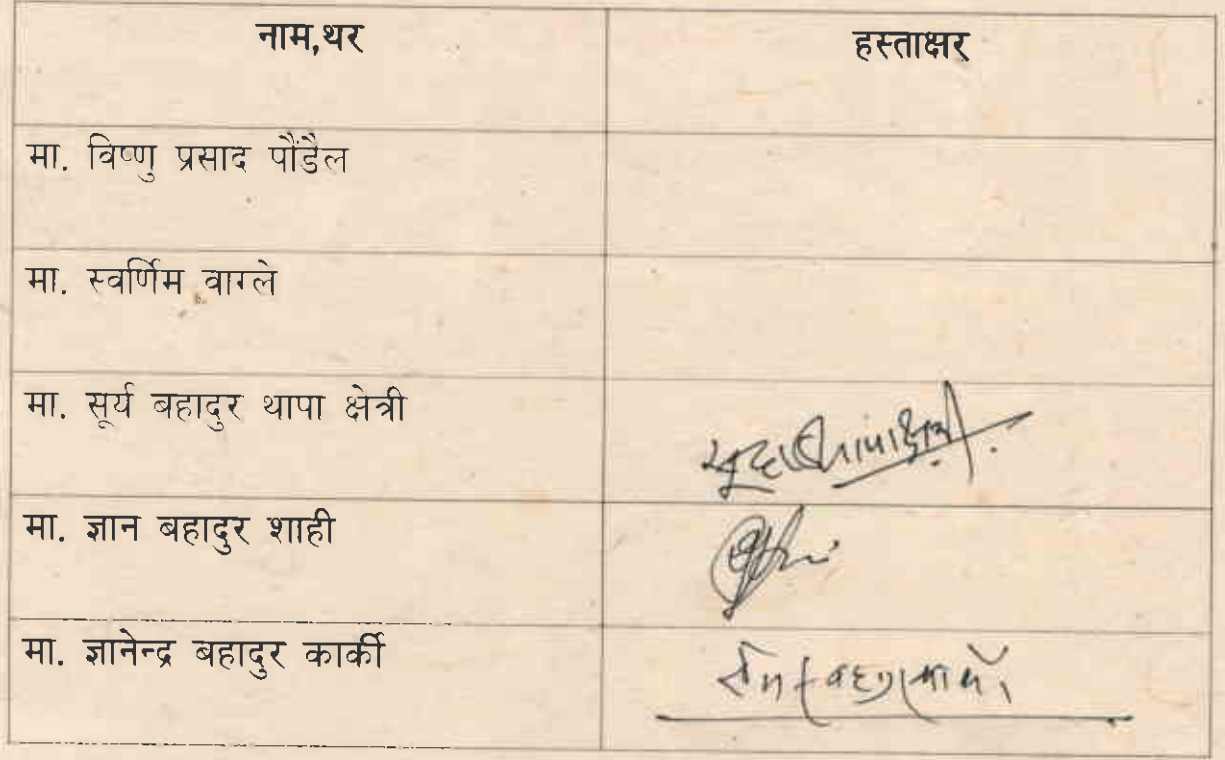 नाम,थर हस्ताक्षर
मा. विष्णु प्रसाद पौडैल
मा. स्वर्णिम वाग्ले
मा. सूर्य बहादुर थापा क्षेत्री
मा. ज्ञान बहादुर शाही
मा. ज्ञानेन्द्र बहादुर कार्की